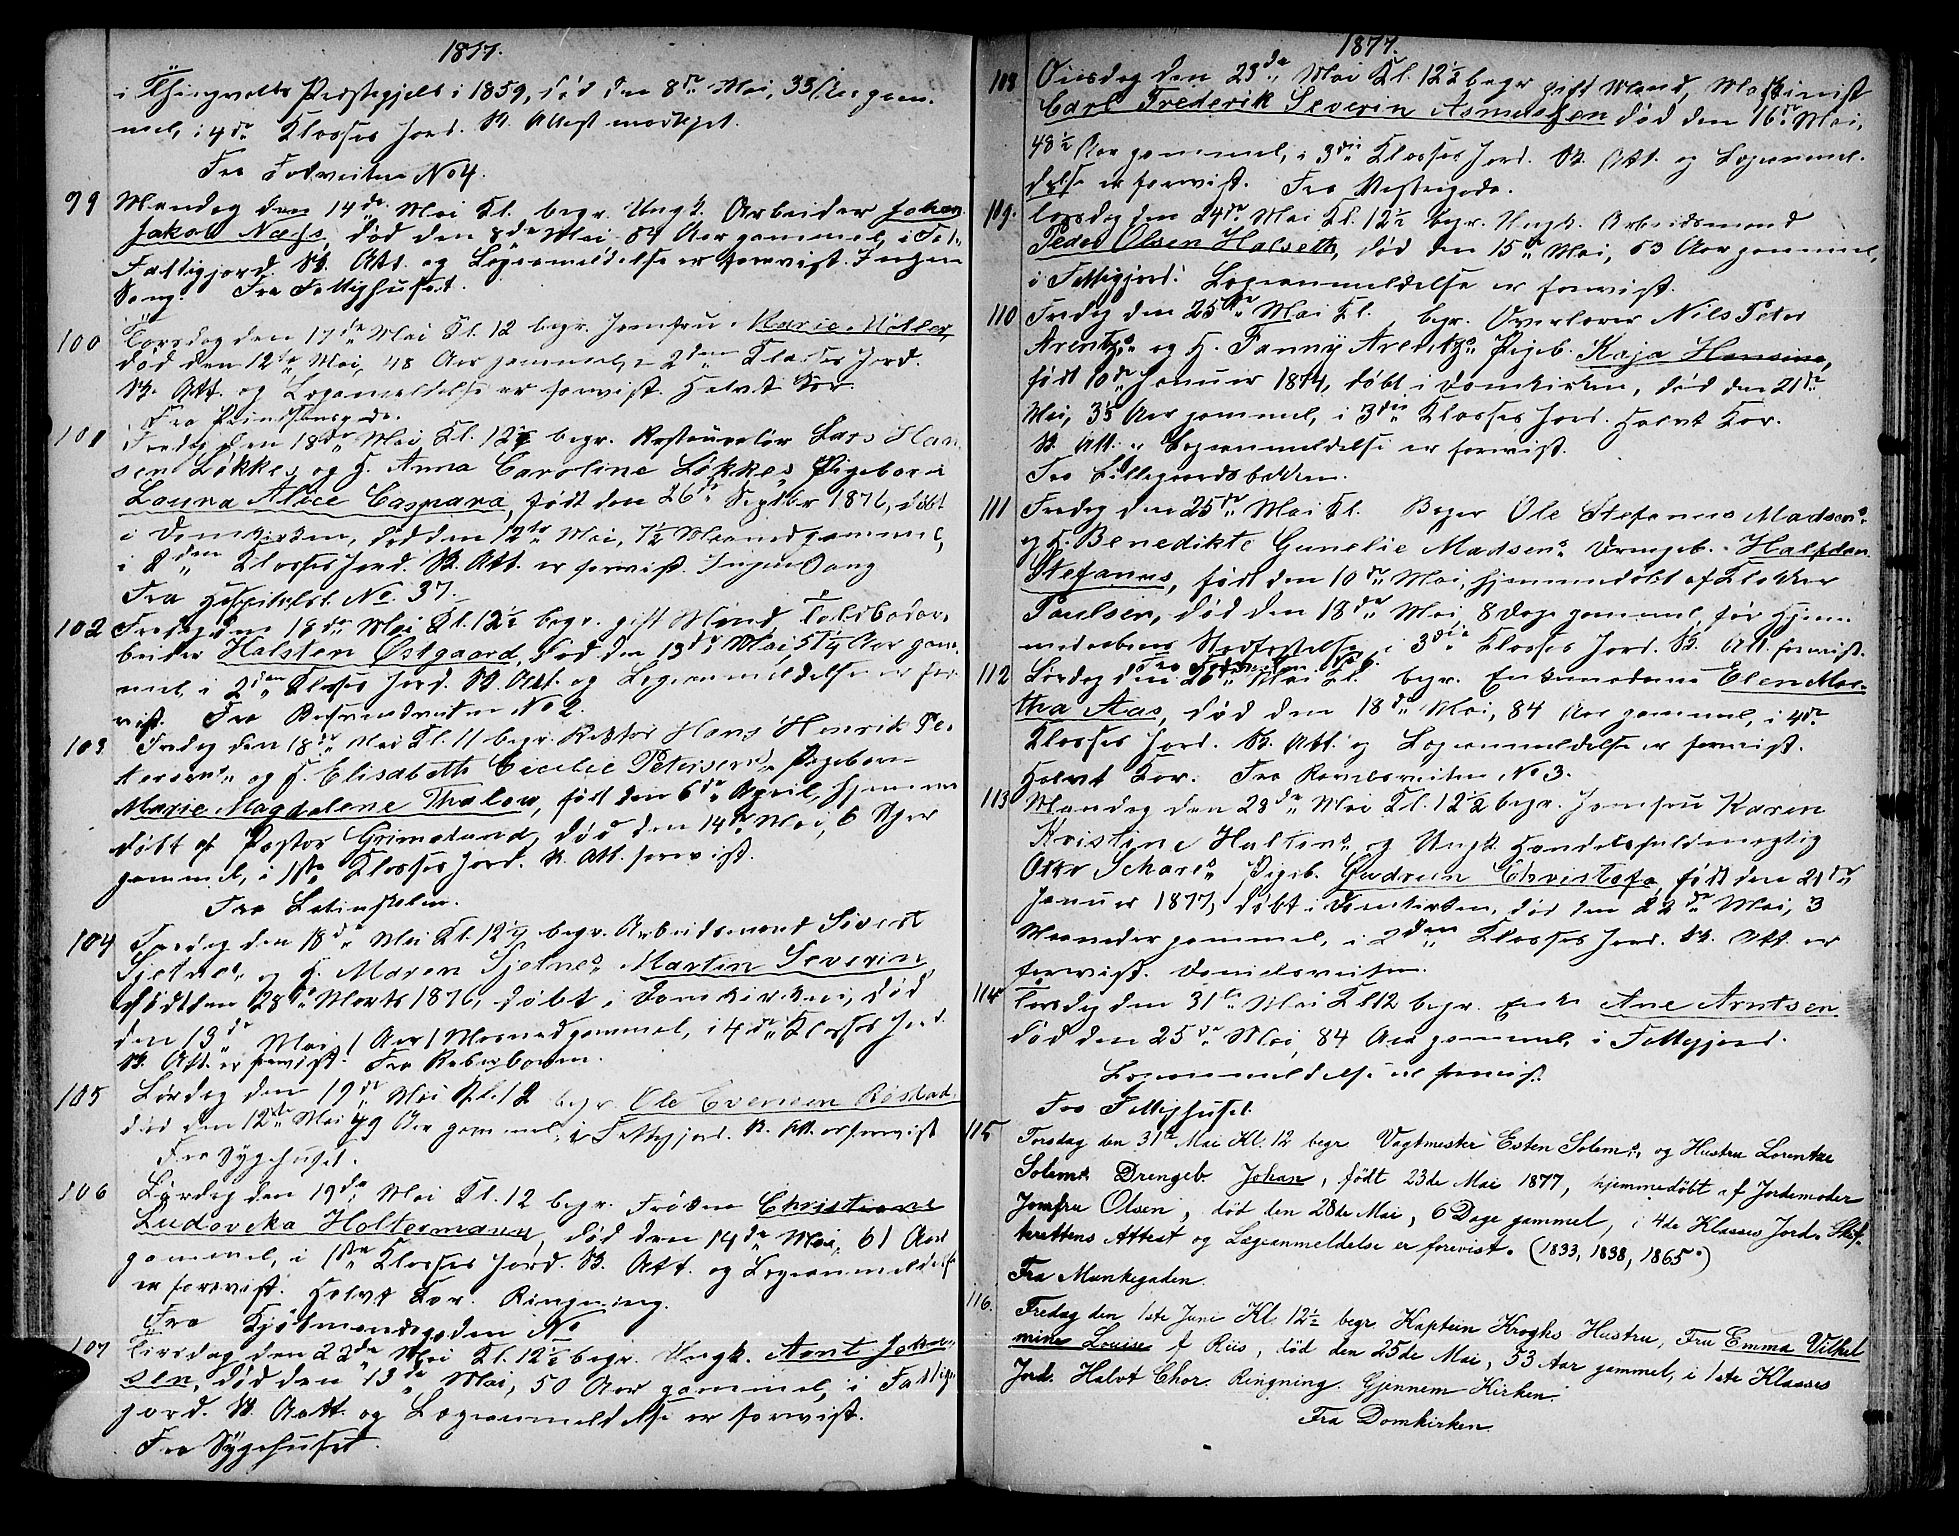 1877.
i Thingvolds Præstegjeld i 1859, død den 8de Mai, 33 Aar gam-
mel, i 4de Klasses Jord. Sk. Attest modtget.
Fra Fodveiten No 4.
99 Mandag den 14de Mai Kl. begr. Ungk. Arbeider Johan
Jakob Næss, død den 8de Mai, Aar gammel, i
Fattigjord. Sk. Att. og Lægeanmeldelse er forevist. Ingen
Sang. Fra Fattighuset.
100 Torsdag den 17de Mai Kl. 12 begr. Jomfru Karie Möller,
død den 12te Mai, 48 Aar gammel, i 2den Klasses Jord.
Sk. Att. og Lægeanmeldelse er forevist. Halvt Kor.
Fra Prindsensgade.
101 Fredag den 18de Mai Kl. 12½ begr. Restauratör Lars Han-
sen Løkkes og H. Anna Caroline Løkkes Pigebarn
Laura Alice Caspara, født den 26de Septbr 1876, døbt
i Domkirken, død den 12te Mai, 7½ Maaned gammel,
i 2den Klasses Jord. Sk. Att. er forevist. Ingen Sang
Fra Hospitalslt. No. 37.
102 Fredag den 18de Mai Kl. 12½ begr. gift Mand, Toldbodar-
beider Halsten Østgaard, død den 13de Mai, Aar gam-
mel, i 2den Klasses Jord. Sk. Att. og Lægeanmeldelse er fore-
vist. Fra No 2.
103 Fredag den 18de Mai Kl. 11 begr. Rektor Hans Henrik Pe-
tersens og H. Elisabeth Cicilie Petersens Pigebarn
Marie Magdalene Thalou, født den 6de April, hjemme
døbt af Pastor Grimelund, død den 14de Mai, 6 Uger
gammel, i 1ste Klasses Jord. Sk. Att. forevist.
Fra Latinskolen.
104 Fredag den 18de Mai Kl. 12½ begr. Arbeidsmand Sivert
Tjetnes og H. Maren Tjetnes Martin Severin,
født den 28de Marts 1876, døbt i Domkirken, død
den 13de Mai, 1 Aar 1 Maaned gammel, i 4de Klasses Jord.
Sk. Att. er forevist. Fra Reberbanen.
105 Lørdag den 19de Mai Kl. 12 begr. Ole Evensen Røstad,
død den 12te Mai, 49 Aar gammel, i Fattigjord. Sk. Att. er forevist
Fra Sygehuset.
106 Lørdag den 19de Mai Kl. 12 begr. Frøken Christiane
Ludovika Holtermann, død den 14de Mai, 61 Aar
gammel, i 1ste Klasses Jord. Sk. Att. og Lægeanmeldelse
er forevist. Halvt Kor. Ringning.
Fra Kjøbmandsgaden No
107 Tirsdag den 22de Mai Kl. 12½ begr. Ungk. Arnt Johan-
sen, død den 13de Mai, 50 Aar gammel, i Fattig-
jord. Sk. Aatt. og Lægeanmeldelse er forevist.
Fra Sygehuset.
1877.
108 Onsdag den 23de Mai Kl. 12½ begr gift Mand, Maskinist
Carl Frederik Severin Asmussen død den 16de Mai,
48½ Aar gammel, i 3die Klasses Jord. Sk. Att. og Lægeanmel-
delse er forevist. Fra
109. Torsdag den 24de Mai Kl. 12½ begr. Ungk. Arbeidsmand
Peder Olsen Halseth, død den 15de Mai, 53 Aar gammel,
i Fattigjord. Lægeanmeldelse er forevist.
110 Fredag den 25de Mai Kl. begr. Overlærer Nils Peter
Arentzs og H. Fanny Arentzs Pigeb. Kaja Hansine,
født 10de Januar 1874, døbt i Domkirken, død den 21de
Mai, Aar gammel, i 3die Klasses Jord. Halvt Kor.
Sk. Att. og Lægeanmeldelse er forevist.
Fra Lillegaardsbakken.
111 Fredag den 25de Mai Kl. Bager Ole Stefanus Madsens
og H. Benedikte Gunelie Madsens Drengeb. Halfdan
Stefanus, født den 10de Mai, hjemmedøbt af Klokker
Paulsen, død den 18de Mai, 8 Dage gammel, før Hjem-
medaabens Stadfæstelse, i 3die Klasses Jord. Sk. Att. forevist.
112 Lørdag den 26de Mai Kl. begr. Enkemadame Elen Mar-
tha Aas, død den 18de Mai, 84 Aar gammel, i 4de
Klasses Jord. Sk. Att. og Lægeanmeldelse er forevist.
Halvt Kor. Fra Ravelsveiten No 3.
113 Mandag den 28de Mai Kl. 12½ begr. Jomfru Karen
Kristine Haltens og Ungk. Handelsfuldmægtig
Otto Pigeb. Gudrun Christofa, født den 21de
Januar 1877, døbt i Domkirken, død den 22de Mai, 3
Maaneder gammel, i 2den Klasses Jord. Sk. Att. er
forevist. Danielsveiten.
114 Torsdag den 31te Mai Kl 12 begr. Enke Ane Arntsen
død den 25de Mai, 84 Aar gammel, i Fattigjord.
Lægeanmeldelse er forevist.
Fra Fattighuset.
115 Torsdag den 31te Mai Kl. 12 begr. Vagtmester Esten Solems og Hustru Lorentze
Solems Drengeb. Johan, født 23de Mai 1877, hjemmedøbt af Jordemoder
Jomfru Olsen, død den 28de Mai, 6 Dage gammel, i 4de Klasses Jord. Skif-
terettens Attest og Lægeanmeldelse er forevist. (1833, 1838, 1865.)
Fra Munkegaden.
116. Fredag den 1ste Juni Kl. 12½ begr. Kaptein Kroghs Hustru, Fru Emma Vilhel
mine Louise f. Riis, død den 25de Mai, 53 Aar gammel, i 1ste Klasses
Jord. Halvt Chor. Ringning. Gjennem Kirken.
Fra Domkirken.